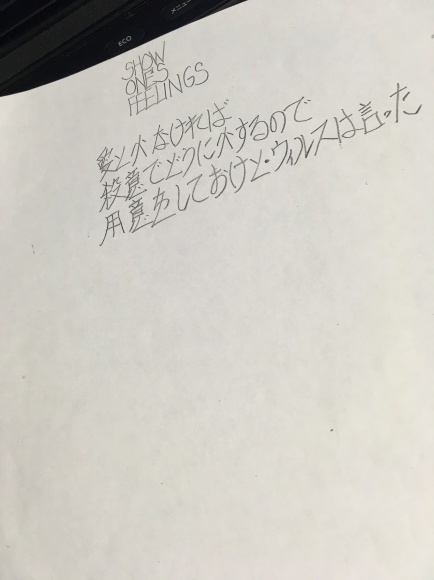 メニュー
ECO
SHOW
ONE'S
FEELINGS
愛と火なければ
殺意でどうに火するので
用意をしておけと・ウィルスは言った